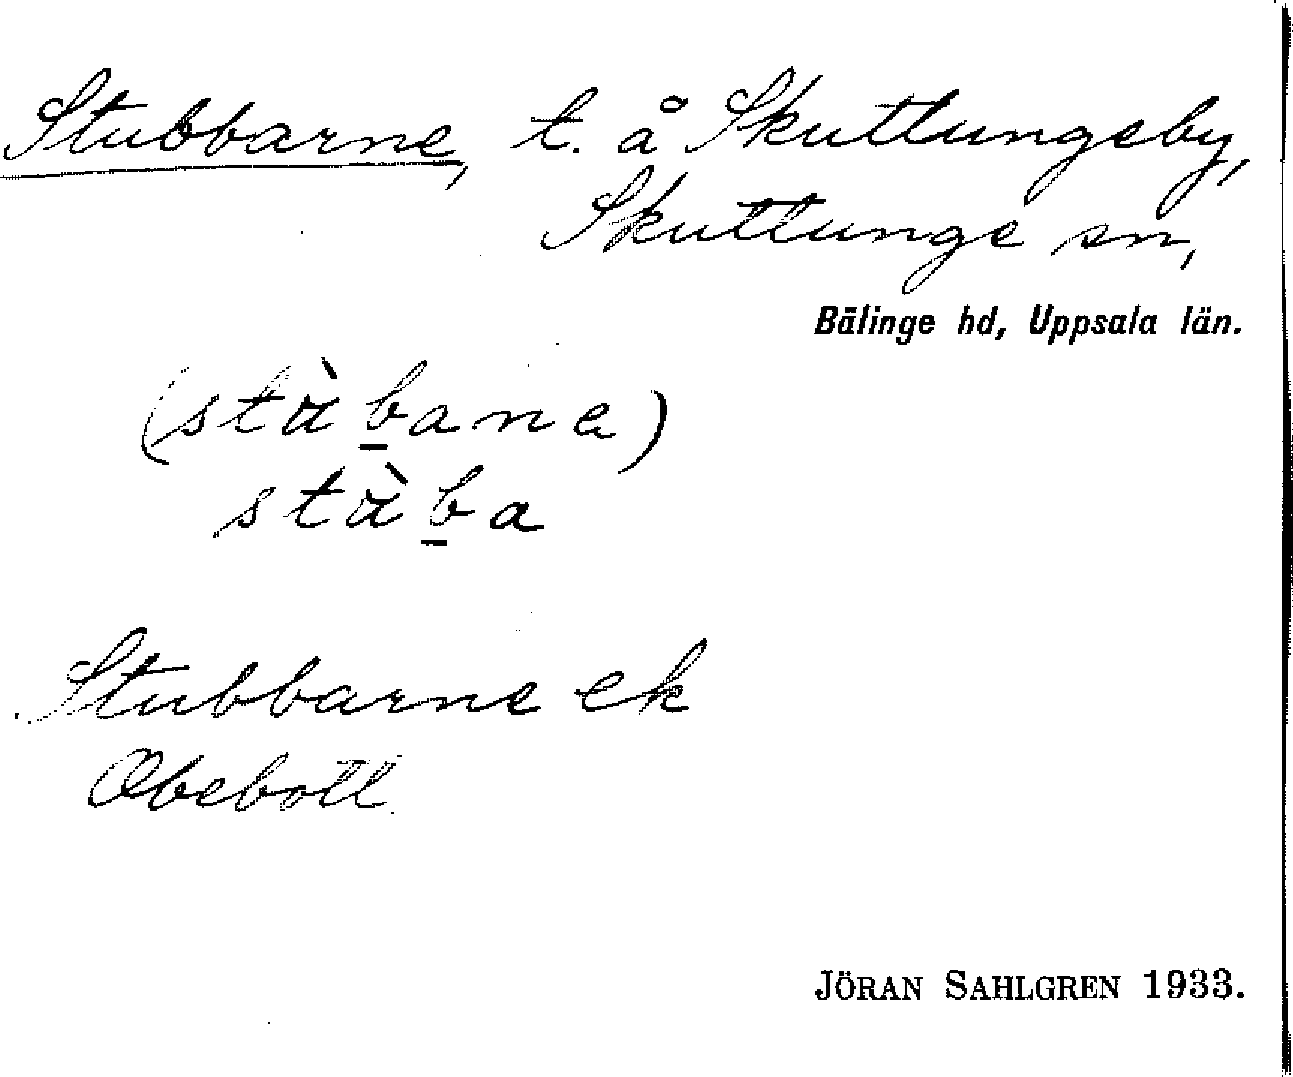 Stubbarne, t. å Skuttungeby,
Skuttunge sn,
Bälinge hd, Uppsala län.
Stubbarne ek
Obebott.
JÖRAN SAHLGREN 1933.